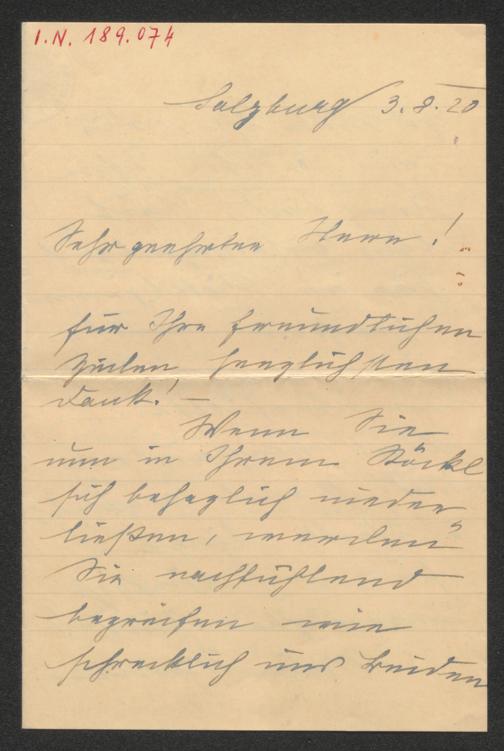 I.N. 189.074
Salzburg 3.8.20
Sehr geehrter Herr!
für Ihre freundlichen
Zeilen, herzlichsten
Dank! –
Wenn Sie
nun in Ihrem Stöckl
sich behaglich nieder
ließen, werden
Sie nachfühlend
begreifen wie
schrecklich uns Beiden